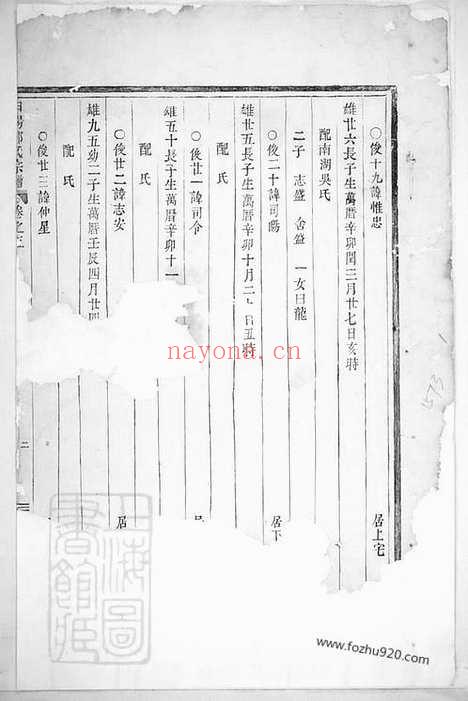 〇俊十九諱惟忠 居上宅
雄廿六長子生萬曆辛卯閏三月廿七日亥時
配南湖吳氏
二子 志盛 舍盛 一女曰龍
〇俊二十諱司 居下
雄廿五長子生萬曆辛卯十月二 日丑時
配 氏
〇俊廿一諱司令
雄五十長子生萬曆辛卯十一
配 氏
〇俊廿二諱志安 居
雄九五幼二子生萬曆壬辰四月廿四
配 氏
〇俊廿三諱仲星
氏宗譜 卷之 二
nayona.cn
1593
上海圖書館藏
www.fozhu920.com